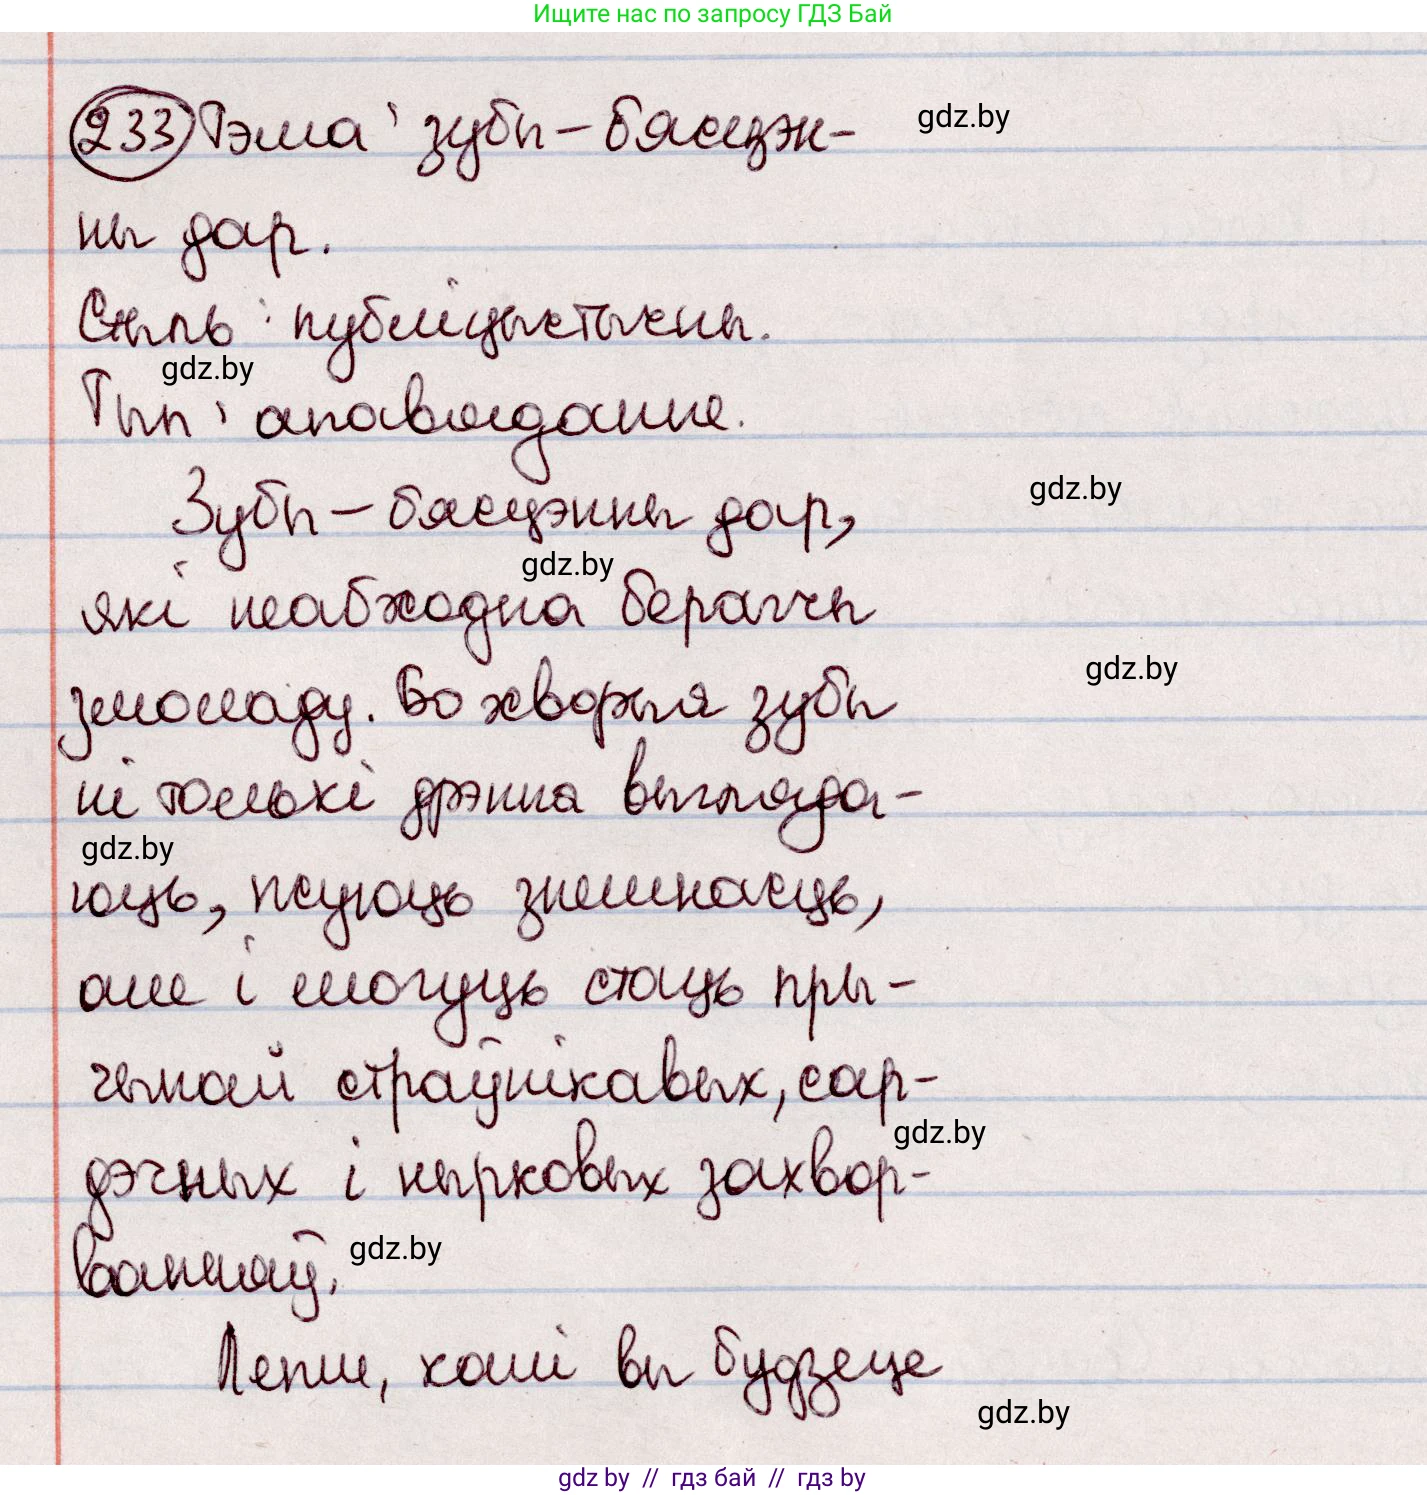 Ищите нас по запросу ГДЗ Бай
233 Тэма: зубы – бясцэн-
gdz.by
ны дар.
Стыль: публіцыстычны.
gdz.by
Тып: апавяданне.
Зубы – бясцэнны дар,
gdz.by
gdz.by
які неабходна берагчы
змоладу. Бо хворыя зубы
gdz.by
ні толькі дрэнна выгляда-
gdz.by
юць, псуюць знешнасць,
але і могуць стаць пры-
чынай страўнікавых, сар-
gdz.by
дэчных і нырковых захвор-
ванняў.
gdz.by
Лепш, калі вы будзеце
gdz.by
gdz by // гдз бай // гдз by